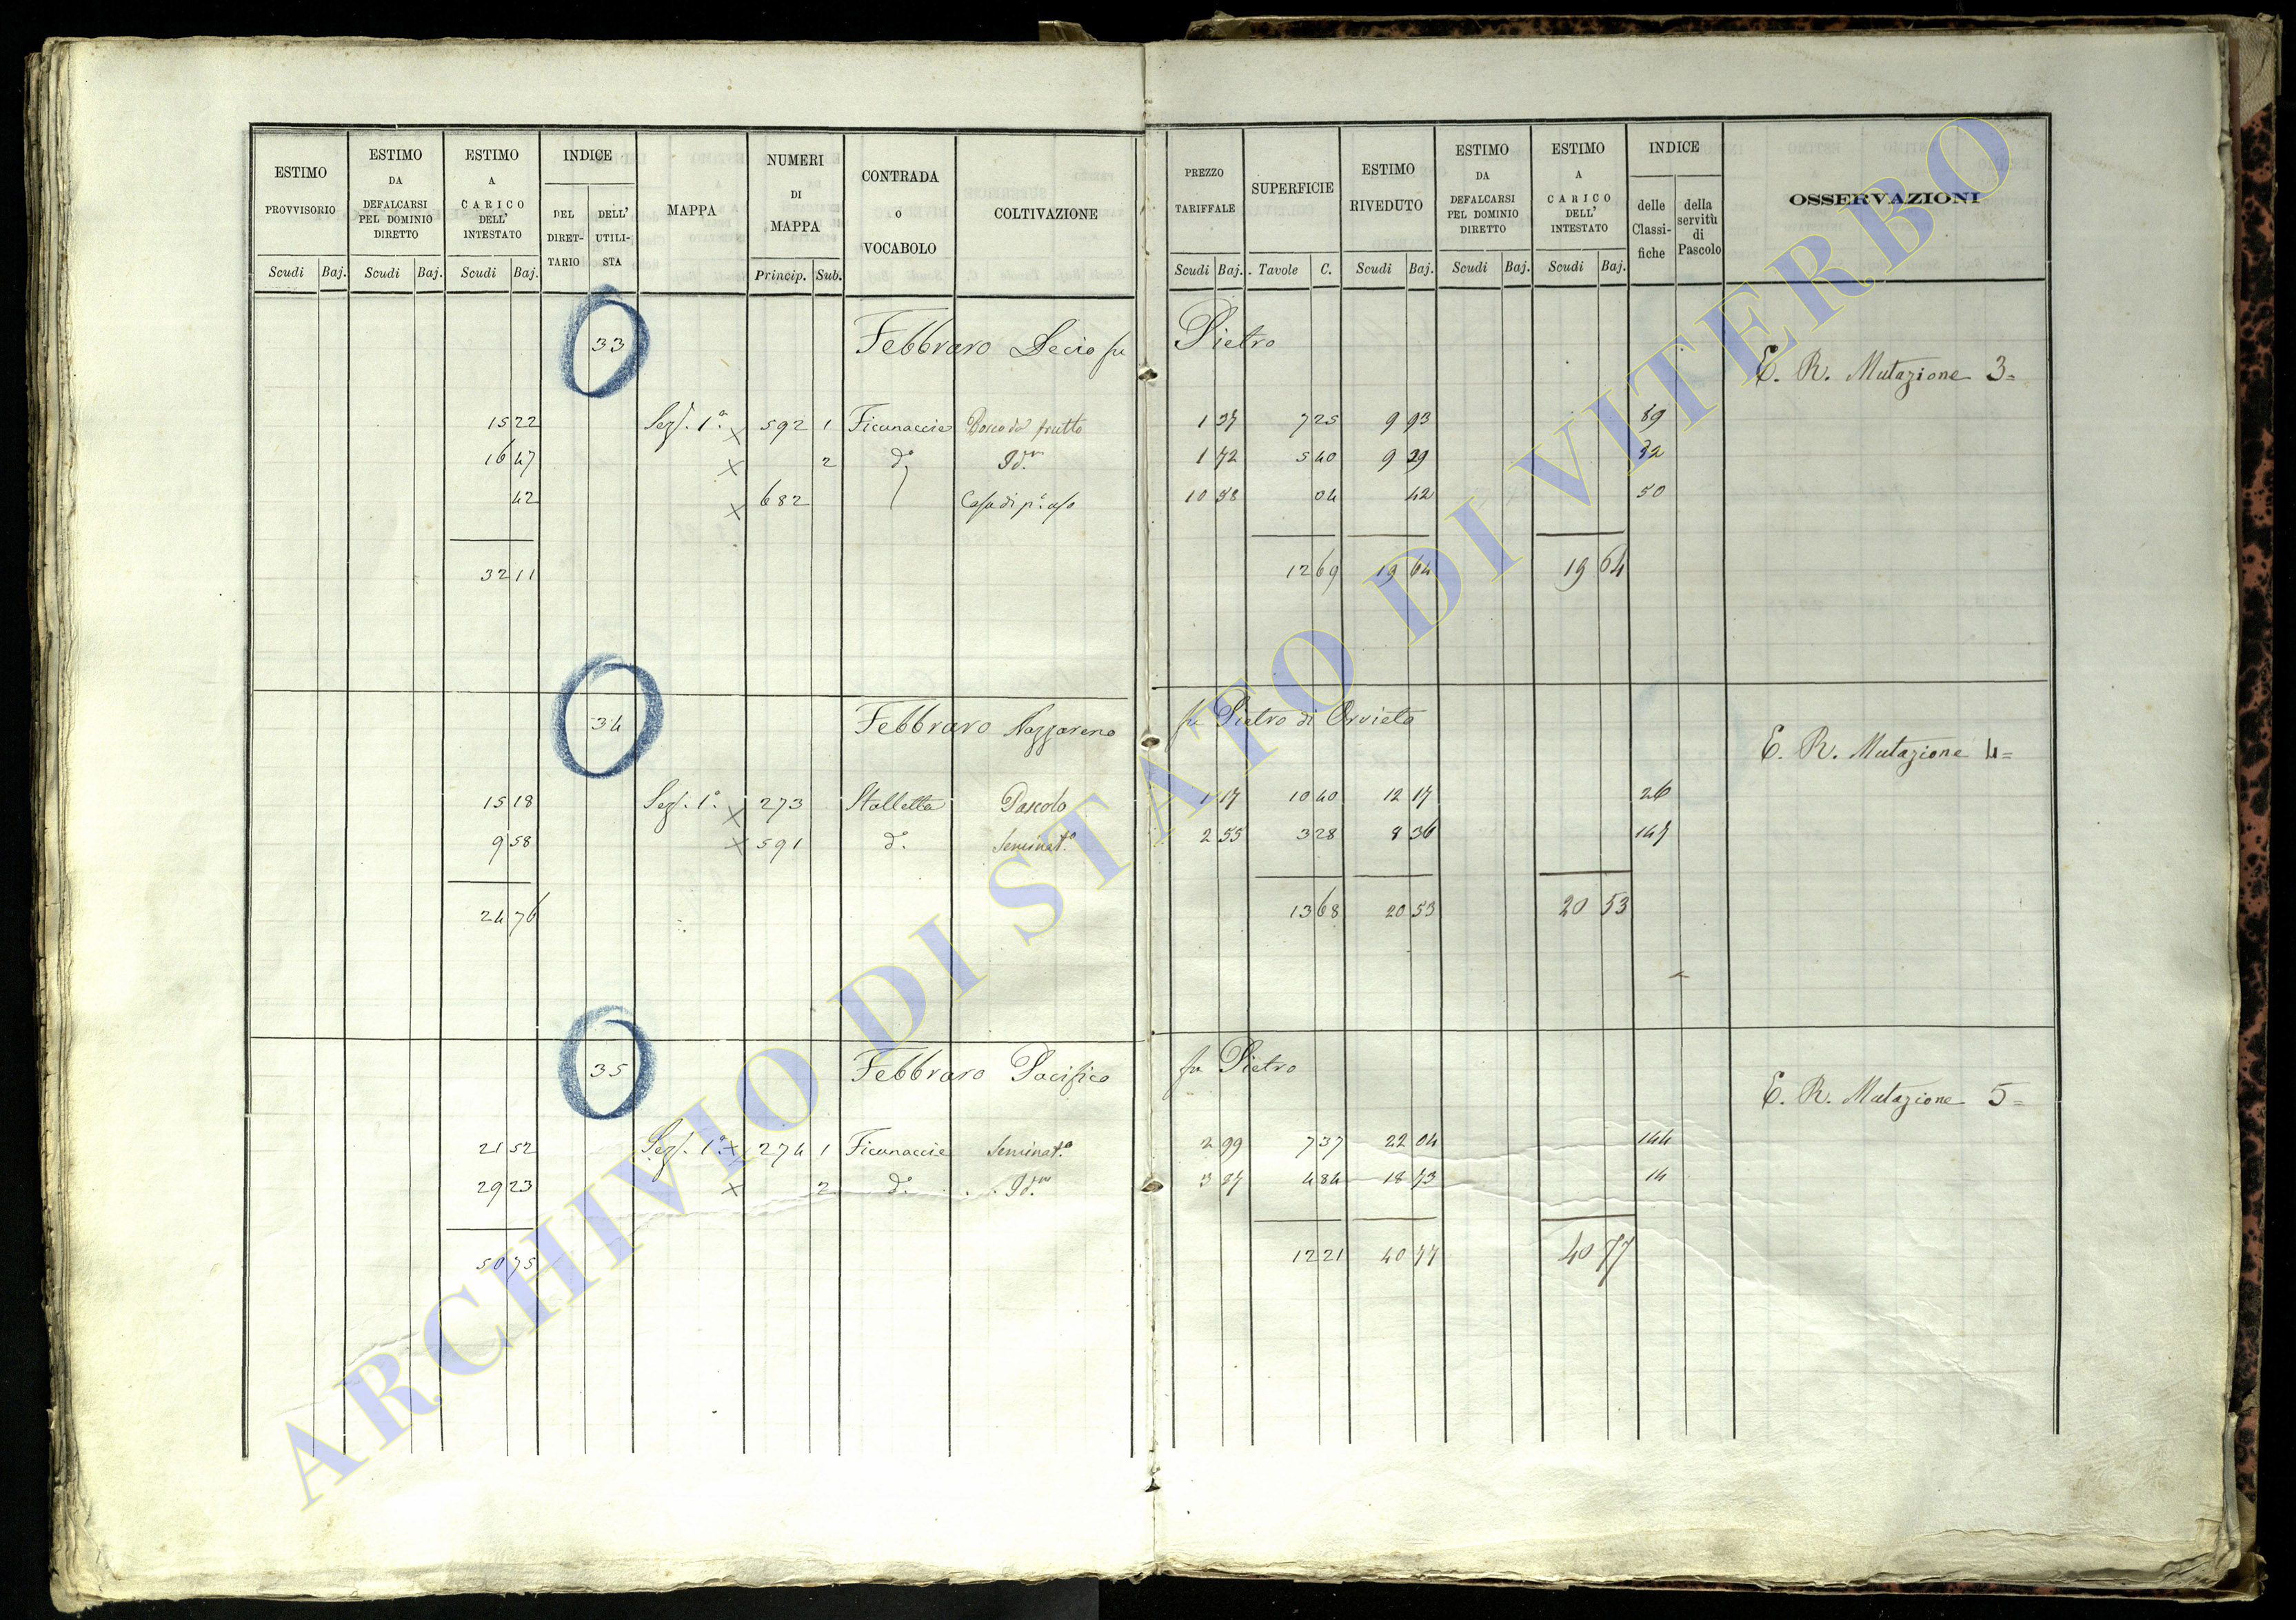 ESTIMO PROVVISORIO ESTIMO DA DEFALCARSI PEL DOMINIO DIRETTO ESTIMO A CARICO DELL' INTESTATO INDICE DEL DIRETTARIO DELL' UTILISTA MAPPA NUMERI DI MAPPA CONTRADA O VOCABOLO COLTIVAZIONE PREZZO TARIFFALE SUPERFICIE ESTIMO RIVEDUTO ESTIMO DA DEFALCARSI PEL DOMINIO DIRETTO ESTIMO A CARICO DELL' INTESTATO INDICE delle Classifiche della servitù di Pascolo OSSERVAZIONI
Scudi Baj. Scudi Baj. Scudi Baj. Princip. Sub. Scudi Baj. Tavole C. Scudi Baj. Scudi Baj. Scudi Baj.
33 Febbraro Decio fu Pietro
E. R. Mutazione 3=
15 22 Sez. 1ª x 592 1 Ficunaccie Bosco da frutto 1 37 7 25 9 93 89
16 47 x 2 d° Idm 1 72 5 40 9 29 32
42 x 682 Casa di p° uso 10 58 04 42 50
32 11 12 69 19 64 19 64
34 Febbraro Nazzareno fu Pietro di Orvieto
E. R. Mutazione 4=
15 18 Sez. 1ª x 273 Stalletta Pascolo 1 17 10 40 12 17 26
9 58 x 591 d° Seminat° 2 55 3 28 8 36 147
24 76 13 68 20 53 20 53
35 Febbraro Pacifico fu Pietro
E. R. Mutazione 5=
21 52 Sez. 1ª x 274 1 Ficunaccie Seminat° 2 99 7 37 22 04 144
29 23 x 2 d° Idm 3 87 4 84 18 73 14
50 75 12 21 40 77 40 77
ARCHIVIO DI STATO DI VITERBO